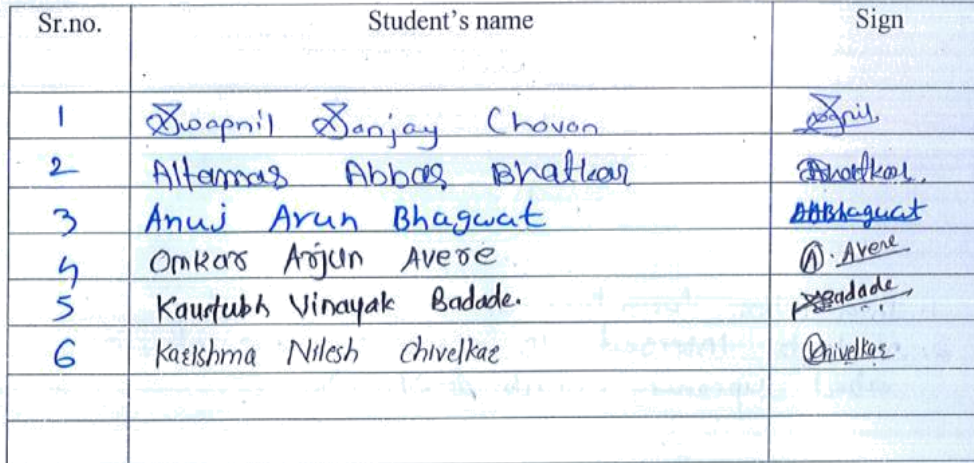 Sr.no. Student's name Sign
1 Swapnil Sanjay Chavan
2 Altamas Abbas Bhatkar Bhatkar.
3 Anuj Arun Bhagwat ABhagwat
4 Omkar Arjun Avere A. Avere
5 Kaustubh Vinayak Badade. Badade
6 Karishma Nilesh Chivelkar Chivelkar